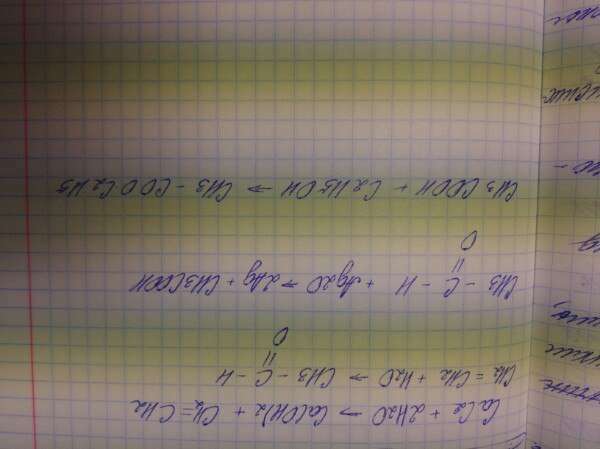 CaC2 + 2H2O → Ca(OH)2 + CH2=CH2
CH2 = CH2 + H2O → CH3 - C - H
||
O
CH3 - C - H + Ag2O → 2Ag + CH3COOH
||
O
CH3COOH + C2H5OH → CH3 - COOC2H5